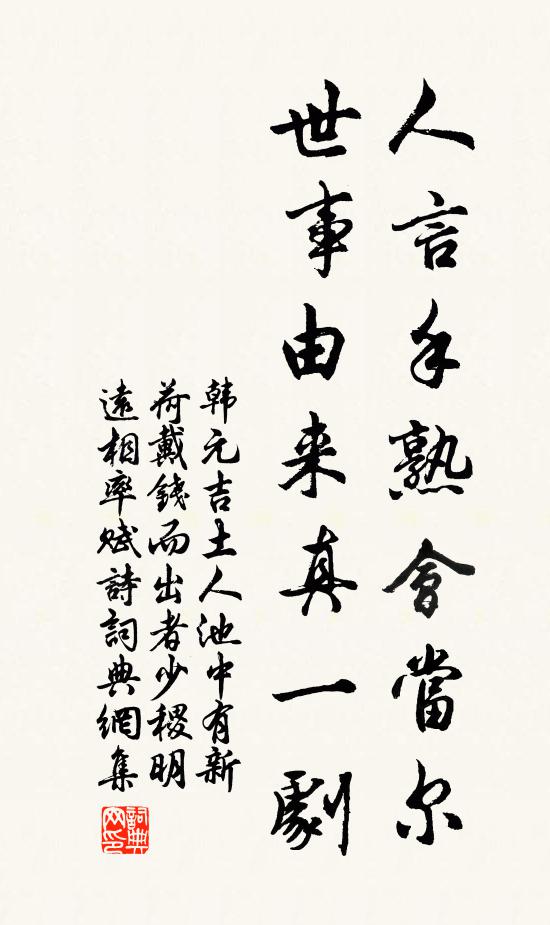 人言手熟會當尔
世事由来真一劇
韩元吉土人池中有新
荷戴錢而出者少稷明
遠相率赋詩詞典網集
詞典网印